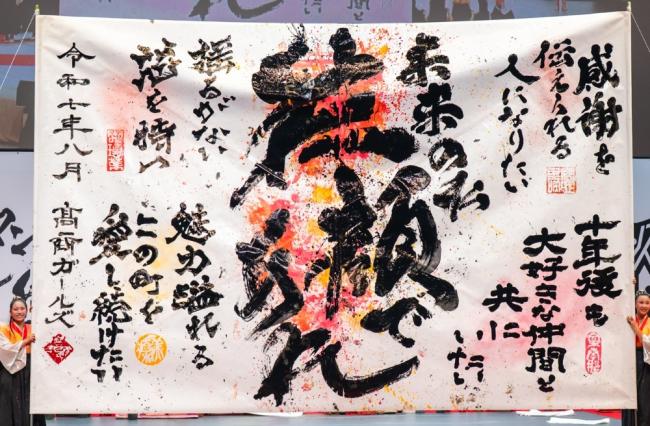 感謝を
伝えられる
人になりたい
十年後も
大好きな仲間と
共に
いたい
未来の
顔で
あれ
揺るがない
志を持ち
魅力溢れる
この町を
愛し続けたい
令和七年八月
高商ガールズ